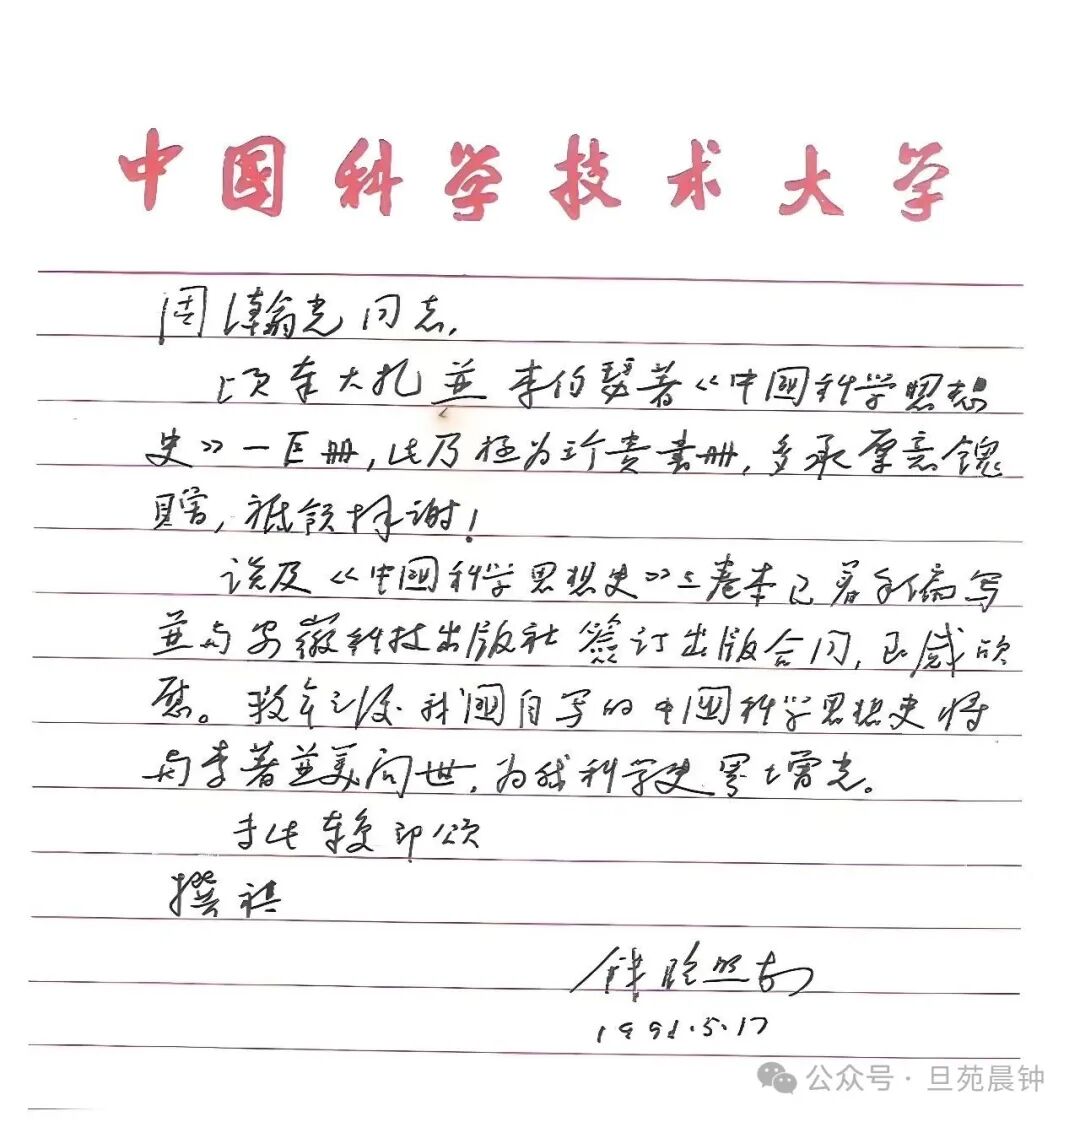 中国科学技术大学
周瀚光同志,
顷奉大札並李约瑟著《中國科学思想
史》一巨册,此乃极为珍贵书册,多承厚意餽
贈,祗领拜谢!
谈及《中國科学思想史》三卷本已着手编写
並与安徽科技出版社簽订出版合同,至感欣
慰。数年之後我國自写的中國科学思想史将
与李著並美问世,为我科学史界增光。
专此奉复即颂
撰祺
钱临照
1991.5.17
公众号·旦苑晨钟